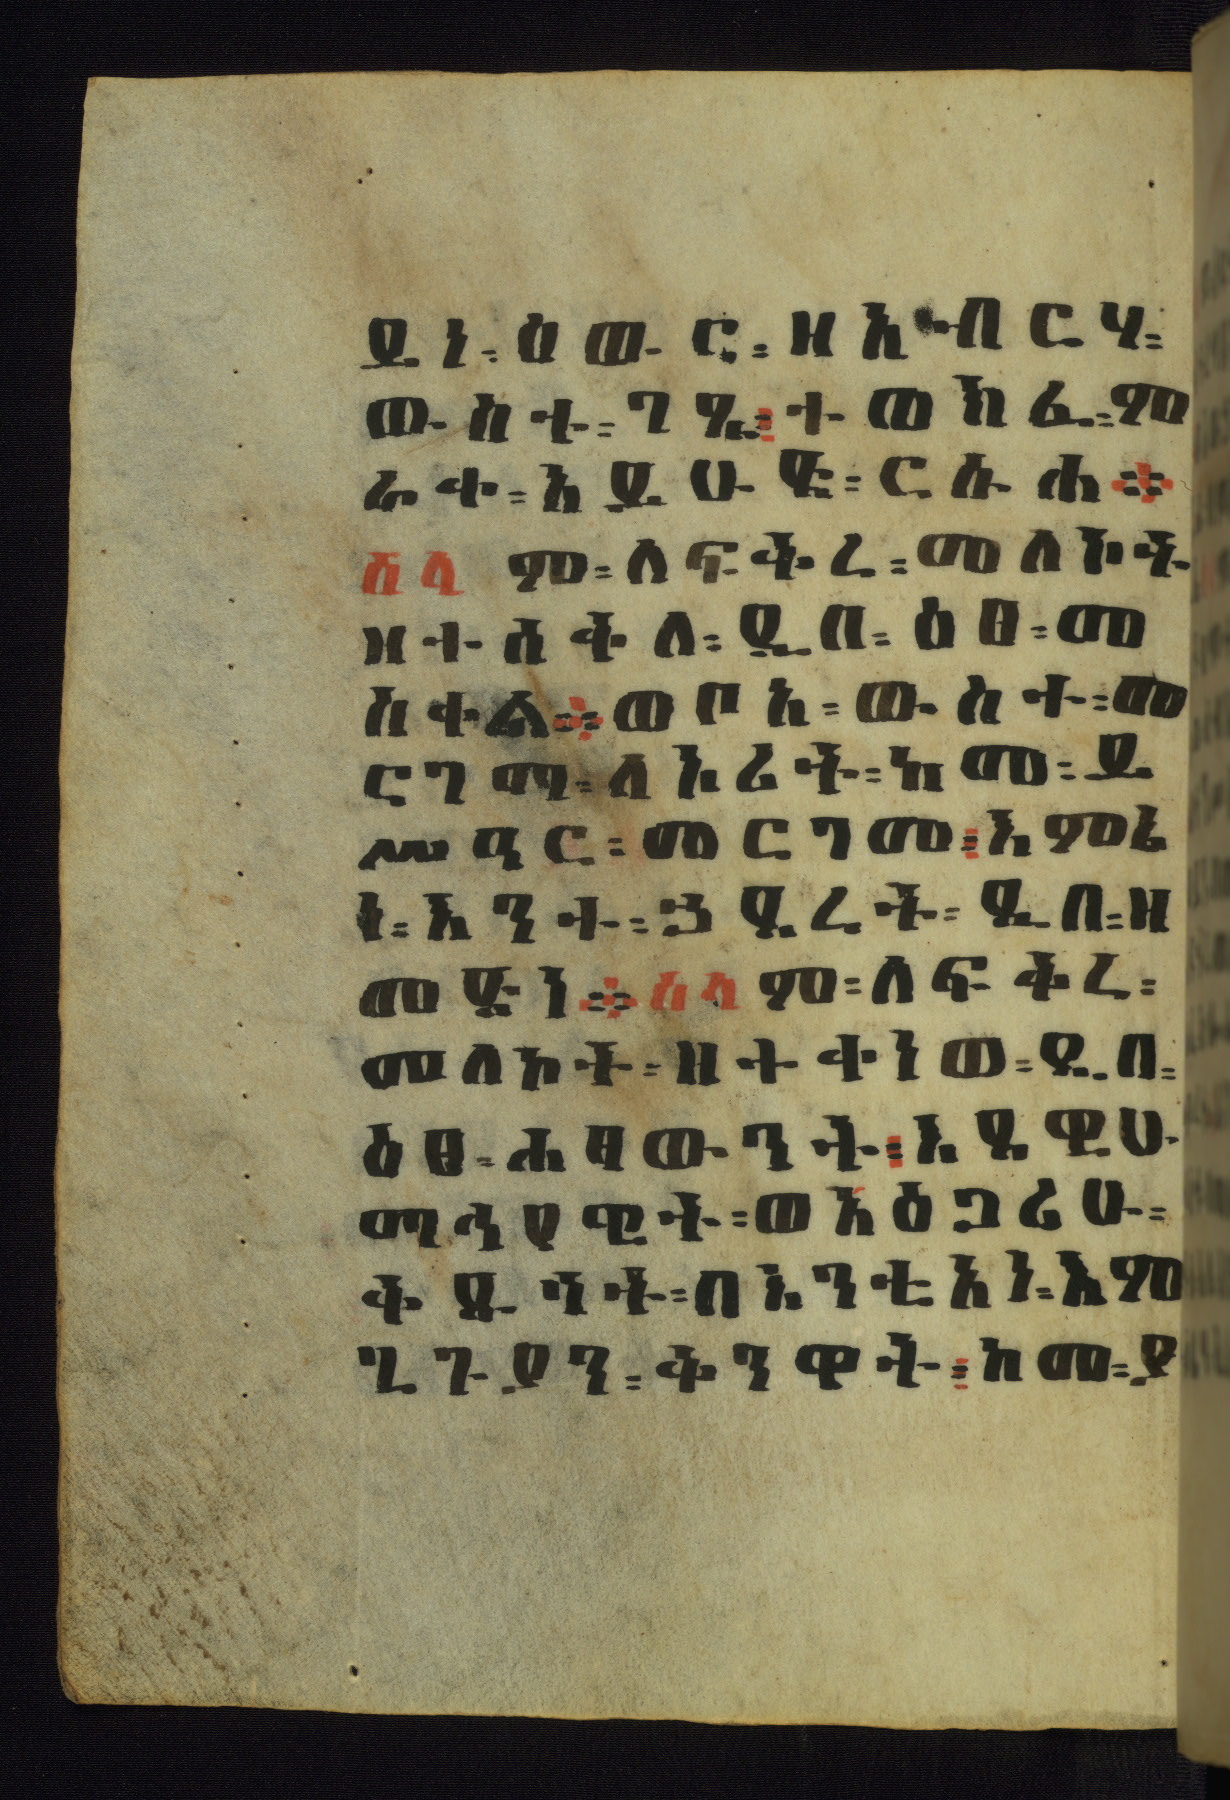 ይነ፡ዕውር፡ዘአብርሃ፡
ውስተ፡ገጹ፡ተወክፈ፡ም
ራቀ፡አይሁድ፡ርሱሐ።
ሰላም፡ለፍቅረ፡መለኮት
ዘተሰቅለ፡ዲበ፡ዕፀ፡መ
ስቀል።ወቦአ፡ውስተ፡መ
ርገማ፡ለኦሪት፡ከመ፡ይ
ሥዒር፡መርገመ፡እምኔ
ነ፡እንተ፡ኃደረት፡ዲበ፡ዘ
መድነ።ሰላም፡ለፍቅረ፡
መለኮት፡ዘተቀነወ፡ዲበ፡
ዕፀ፡ሐፃውንት፡እደዊሁ
ማሕየዊት፡ወእዕጋሪሁ፡
ቅዱሳት፡በእንቲአነ፡እም
ጌጋያን፡ቅንዋት፡ከመ፡ያ